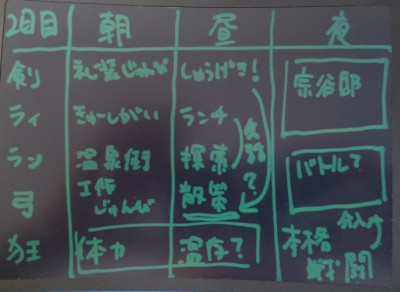 2日目 朝 昼 夜
剣 礼装じゅんび しゅうげき! 宗谷邸
ライ きゅーしがい ランチ
ラン 温泉街 探索 バトル?
弓 工作じゅんび 散策 ?
狂 体力 温存? 本格戦闘